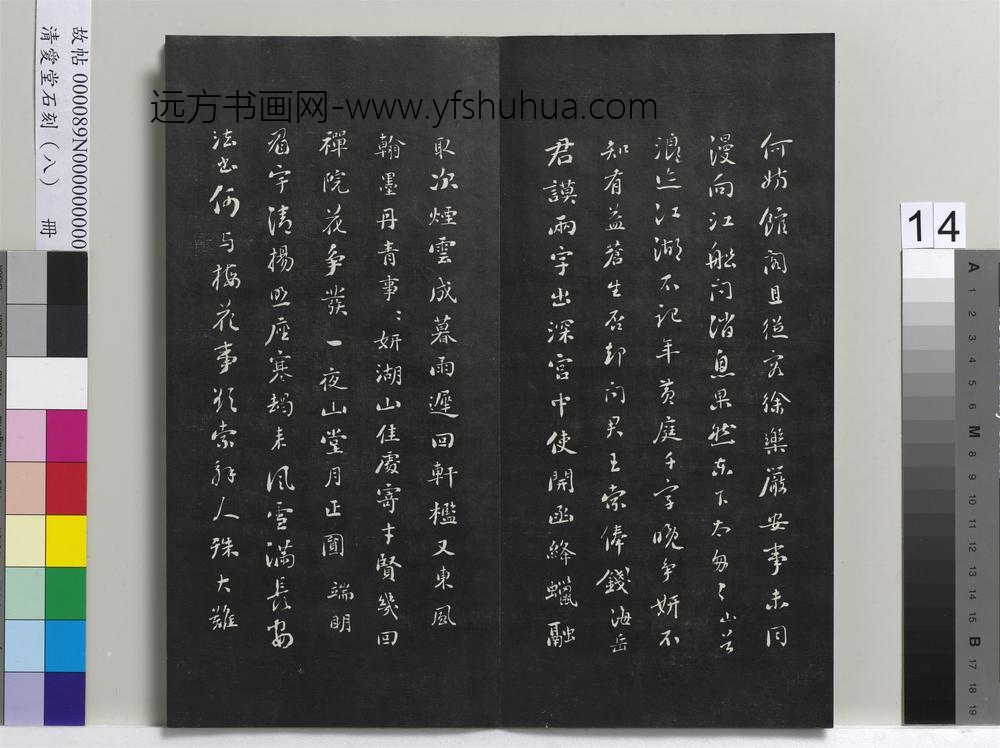 远方书画网-www.yfshuhua.com
何妨館閣且從容徐樂嚴安事未同
漫向江船问消息果然东下太匆々山谷
浪迹江湖不記年黄庭千字晚争妍不
知有益蒼生否却问君王索俸錢海岳
君謨兩字出深宫中使開函絳蠟融
取次煙雲成暮雨遲回軒檻又東風
翰墨丹青事〻妍湖山佳處寄才賢幾回
禪院花争發一夜山堂月正圓 端明
眉宇清揚照座寒来風雪滿長安
法书何与梅花事欲索解人殊大難
故帖 000089N000000000
清愛堂石刻（八） 冊
14
A 1 2 3 4 5 6 M 8 9 10 11 12 13 14 15 B 17 18 19